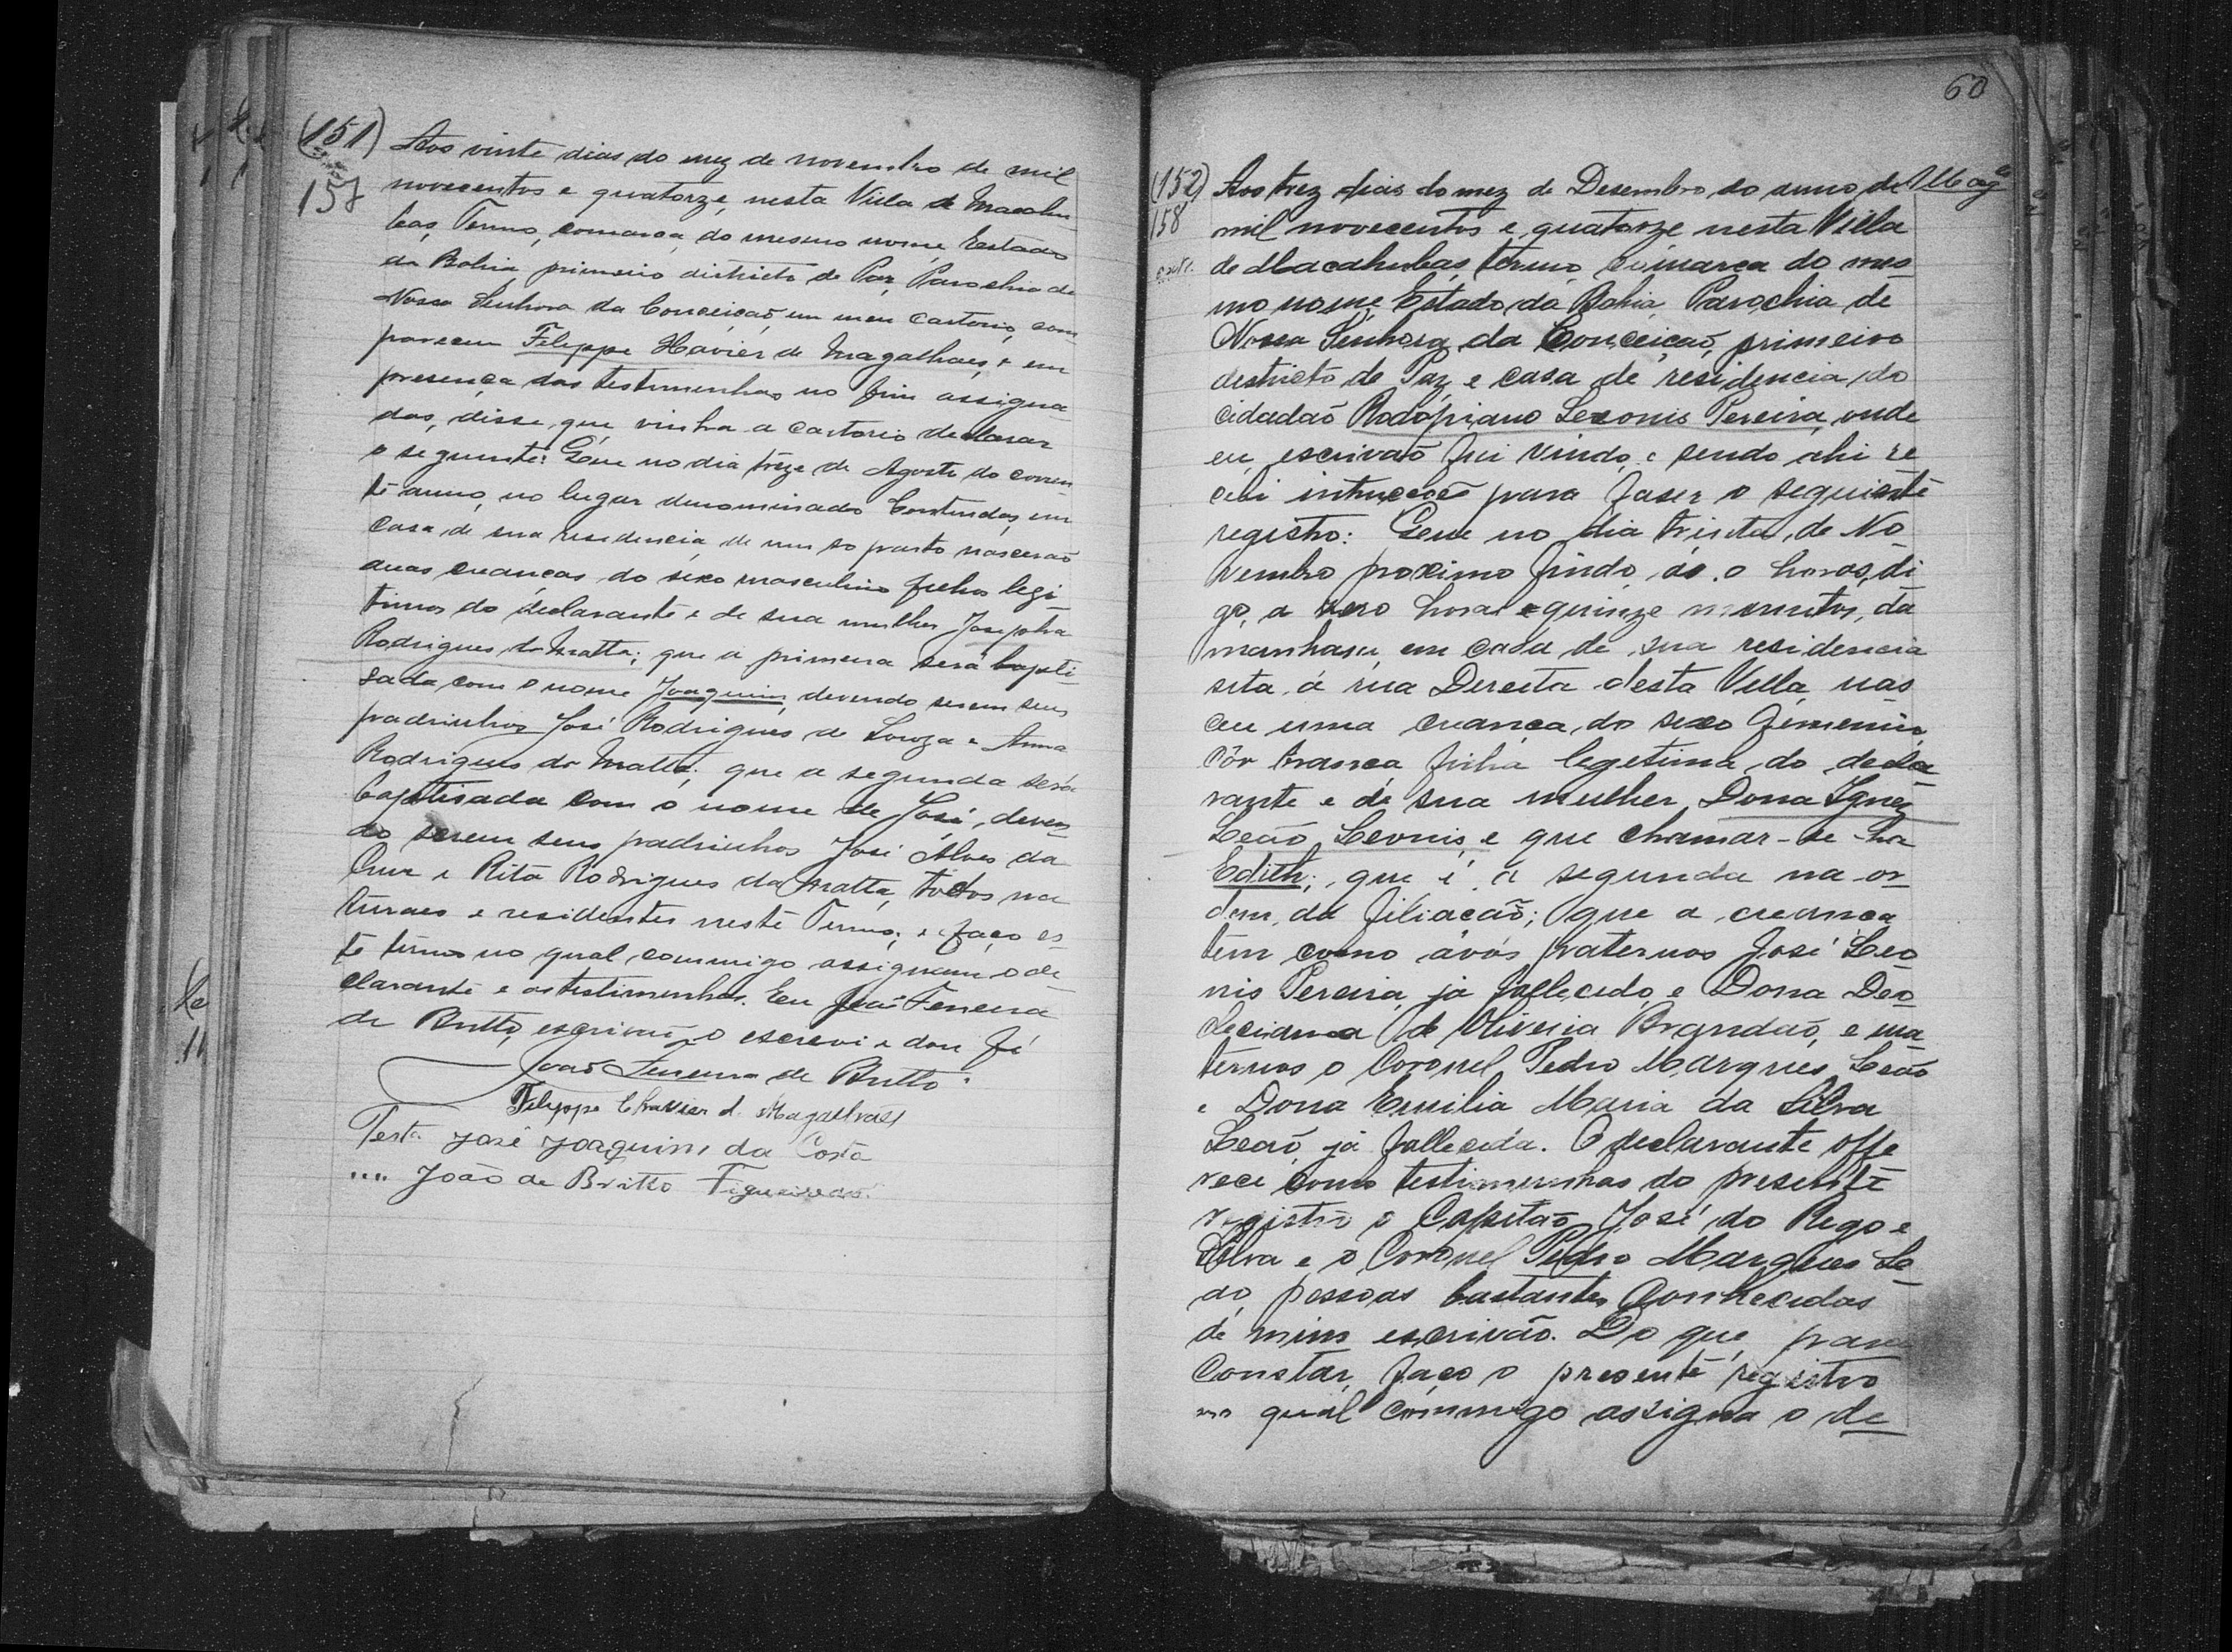 (151)
157
Aos vinte dias do mez de novembro de mil
novecentos e quatorze, nesta Villa de Macahu
bas, Termo, comarca do mesmo nome, Estado
da Bahia primeiro districto de Paz, Parochia de
Nossa Senhora da Conceição, em meu cartorio, com
pareceu Filippe Xavier de Magalhaes, e em
presença das testimunhas no fim assigna
das, disse, que vinha a cartorio declarar
o seguinte: Que no dia treze de Agosto do corren
te anno, no lugar denominado Contendas, em
casa de sua residencia, de um so parto nascerão
duas creanças do sexo masculino filhos legi
timos do declarante e de sua mulher Josepha
Rodrigues da Matta; que a primeira será bapti
sada com o nome Joaquim, devendo serem seus
padrinhos José Rodrigues de Souza e Anna
Rodrigues da Matta; que a segunda será
baptisada com o nome de José, deven
do serem seus padrinhos José Alves da
Cruz e Rita Rodrigues da Matta, todos na
turaes e residentes neste Termo; e faço es
te termo no qual commigo assignam o de
clarante e as testimunhas. Eu João Ferreira
de Britto, escrivão o escrevi e dou fé
João Ferreira de Britto.
Filippe Chavier d. Magalhães
Testa José Joaquim da Costa
.... João de Britto Figueiredo.
60
(152)
158
Aos trez dias do mez de Desembro do anno de
mil novecentos e quatorze nesta Villa
de Macahubas, termo, comarca do mes
mo nome, Estado da Bahia, Parochia de
Nossa Senhora da Conceição, primeiro
districto de Paz, e casa de residencia do
cidadão Rodopiano Leonis Pereira, onde
eu, escrivão fui vindo, e sendo ahi re
cebi intrucção para faser o seguinte
registro: Que no dia trinta de No
vembro proximo findo, ás o horas, di
go, a zero horas e quinze minutos, da
manhas, em casa de sua residencia
sita á rua Dereita desta Villa, nas
ceu uma creança, do sexo femenino
côr branca filha legetima do decla
rante e de sua mulher, Dona Ignez
Leão Leonis, e que chamar-se-ha
Edith; que é a segunda na or
dem da filiacão; que a creanca
tem como avós paternos José Leo
nis Pereira, já fallecido, e Dona Deo
cleciana de Oliveira Brandão, e ma
ternos o Coronel Pedro Marques Leão
e Dona Emilia Maria da Silva
Leão, já fallecida. O declarante offe
rece como testimunhas do presente
registro o Capitão José do Rego e
Silva e o Coronel Pedro Marques Le
ão, pessoas bastantes conhecidas
de mim escrivão. Do que, para
constar, faço o presente registro
no qual commigo assigna o de